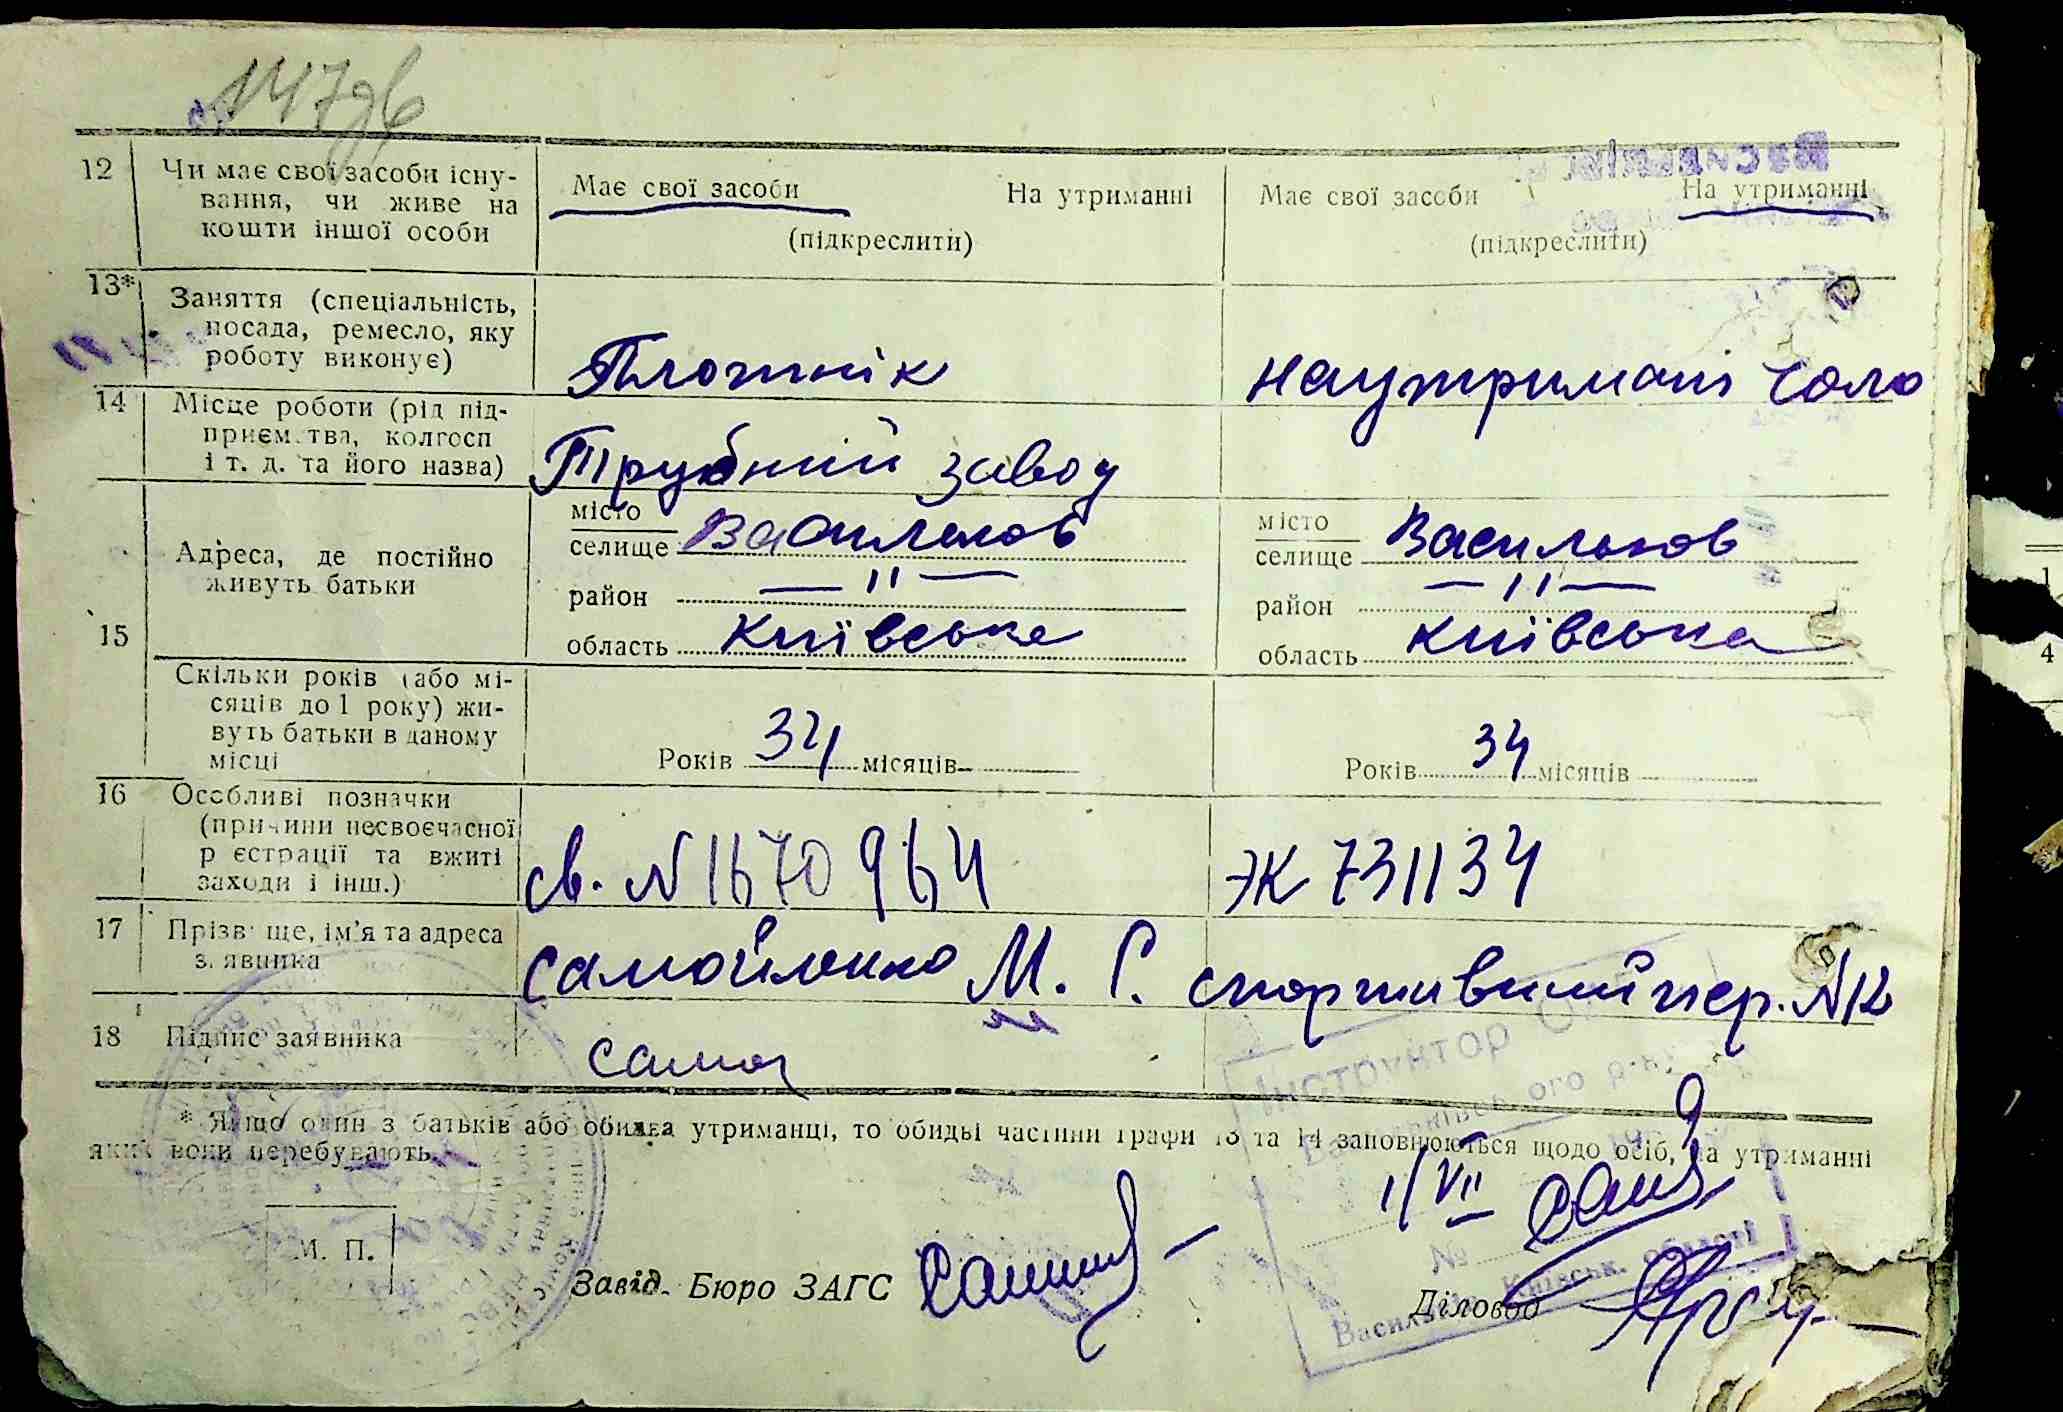 147
12 Чи має свої засоби існу- Має свої засоби На утриманні Має свої засоби На утриманні
вання, чи живе на
кошти іншої особи (підкреслити) (підкреслити)
13* Заняття (спеціальність,
посада, ремесло, яку
роботу виконує) Плотнік наутримані чоло
14 Місце роботи (рід під-
приємства, колгосп
і т. д. та його назва) Трубний завод
15 Адреса, де постійно
живуть батьки
місто
селище Васильков
район — 〃 —
область Київська
місто
селище Васильков
район — 〃 —
область Київська
Скільки років (або мі-
сяців до 1 року) жи-
вуть батьки в даному
місці
Років 34 місяців
Років 34 місяців
16 Особливі позначки
(причини несвоєчасної
реєстрації та вжиті
заходи і інш.) св. N 1670964 ЖК 731134
17 Прізвище, ім'я та адреса
заявника Самойленко М. Г. спортивний пер. N12
18 Підпис заявника Само
* Якщо один з батьків або обидва утриманці, то обидві частини графи 13 та 14 заповнюються щодо осіб, на утриманні
яких вони перебувають.
Інструктор
1/VII
№
Київськ. області
М. П.
Завід. Бюро ЗАГС
Діловод